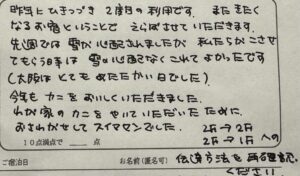 昨年にひきつづき 2度目の利用です。またきたく
なるお宿ということで えらばせていただきます。
先週では雪が心配されましたが 私たちがこさせ
てもらう日までは 雪の心配なくこれてよかったです
(大阪はとてもあたたかい日でした)
今年もカニをおいしくいただきました。
わが家のカニをやいていただいたために、
おさわがせしてスイマセンでした。
2F → 2F
2F → 1F への
10点満点で 点
伝達方法を再確認
ご宿泊日 お名前(匿名可)
ください